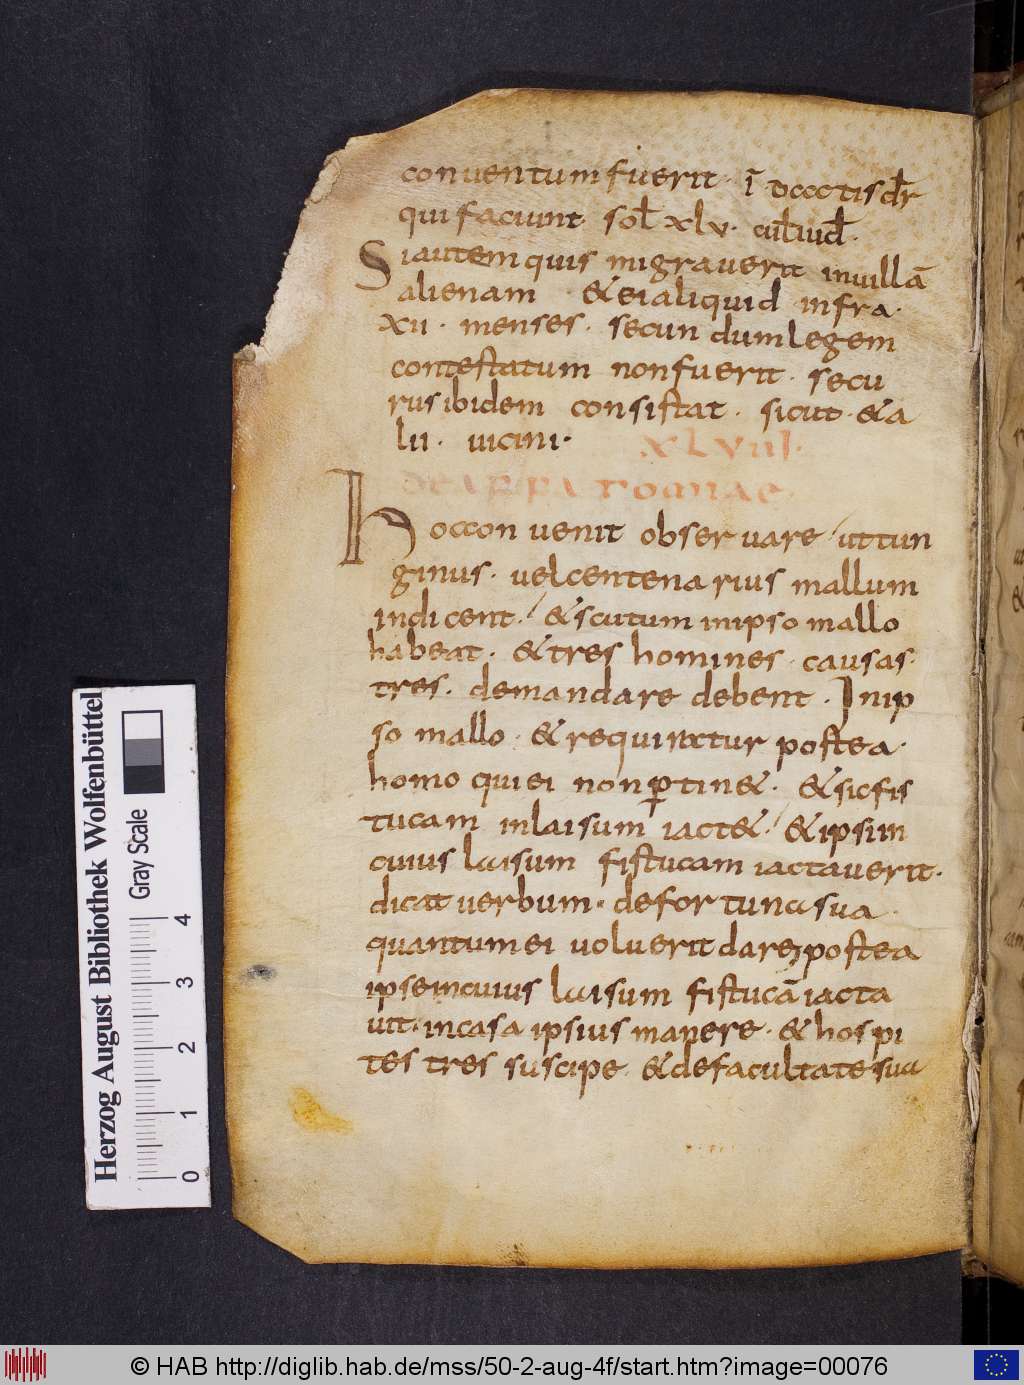 conuentum fuerit · ī dcccctis dr̄
qui faciunt sol̄ xlv· cul̄ iud̄ ·
Si autem quis migrauerit in uillā
alienam & ei aliquid infra·
xii · menses · secundum legem
contestatum non fuerit · secu
rus ibidem consistat · sicut & a
lii · uicini·
XLVIII·
DE APPATOMIAE
Hoc conuenit obseruare ut tun
ginus · uel centenarius mallum
indicent · & scutum in ipso mallo
habeat · & tres homines · causas·
tres · demandare debent · In ip
so mallo · & requiratur postea·
homo qui ei non ꝑtin& · & sic fis
tucam in laisum iact& · & ipsi in
cuius laisum fistucam iactauerit·
dicat uerbum · de fortuna sua ·
quantum ei uoluerit dare postea
ipse in cuius laisum fistucā iacta
uit· in casa ipsius manere · & hospi
tes tres suscipe · & de facultate sua
Herzog August Bibliothek Wolfenbüttel
Gray Scale
0 1 2 3 4
© HAB http://diglib.hab.de/mss/50-2-aug-4f/start.htm?image=00076